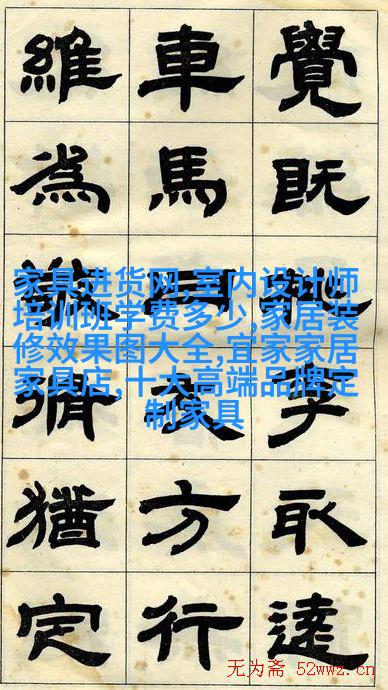 覺既取遠
車馬方行
維為猶定
家具进货网,室内设计师
培训班学费多少,家居装
修效果图大全,宜家家居
家具店,十大高端品牌定
制家具
无为斋 52wwz.cn